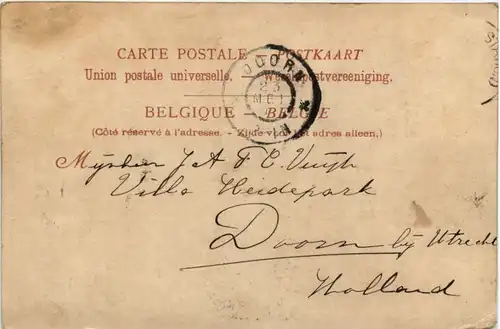 CARTE POSTALE – POSTKAART
Union postale universelle. – Wereldpostvereeniging.
BELGIQUE – BELGIE
(Côté réservé à l'adresse. – Zijde voor het adres alleen.)
DOORN
23
MEI
J A F C
Villa Heidepark
Doorn bij Utrecht
Holland